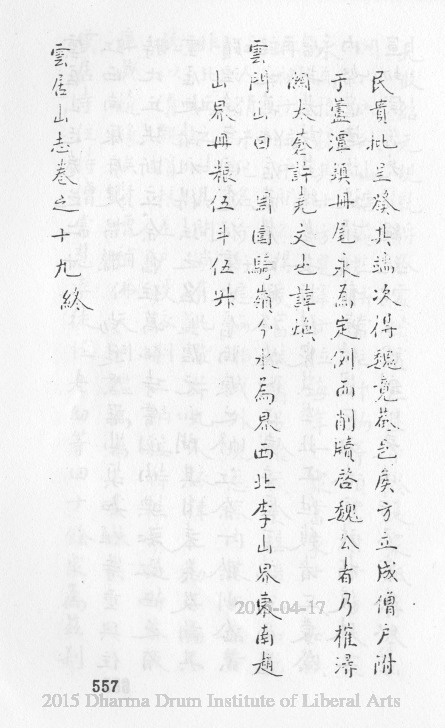 民貴批呈發其端次得魏覺葊邑矦方立成僧戶附
于蘆潭鎮冊尾永為定例而削牘啓魏公者乃榷潯
關太倉許堯文也諱煥
雲門山田 騎嶺分水為界西北李山界東南趙
山界冊糧伍斗伍升
雲居山志卷之十九終
2015-04-17
557
2015 Dharma Drum Institute of Liberal Arts